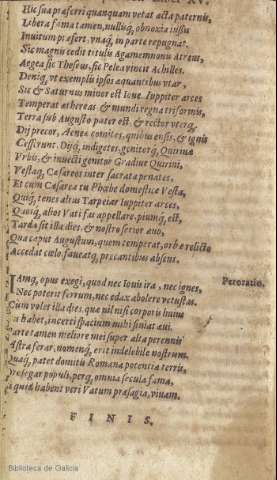 Hic sua præferri quanquam vetat acta paternis,
Libera fama tamen, nullisq; obnoxia iussis
Inuitum præfert, vnaq; in parte repugnat.
Sic magni cedit titulis Agamemnonis Atreus,
Aegea sic Theseus, sic Pelea vincit Achilles.
Deniq; vt exemplis ipsos æquantibus vtar,
Sic & Saturnus minor est Ioue. Iuppiter arces
Temperat æthereas & mundi regna triformis,
Terra sub Augusto: pater est & rector vterq;.
Dij precor, Aeneæ comites, quibus ensis, & ignis
Cesserunt, Dijq; indigetes, genitorq; Quirine
Vrbis, & inuicti genitor Gradiue Quirini,
Vestaq; Cæsareos inter sacrata penates,
Et cum Cæsarea tu Phœbe domestice Vesta,
Quiq; tenes altus Tarpeias Iuppiter arces,
Quosq; alios Vati fas appellare, piumq; est,
Tarda sit illa dies, & nostro serior æuo,
Qua caput Augustum, quem temperat, orbe relicto
Accedat cælo, faueatq; precantibus absens.
IAmq; opus exegi, quod nec Iouis ira, nec ignes, Peroratio.
Nec poterit ferrum, nec edax abolere vetustas.
Cum volet illa dies, quæ nil nisi corporis huius
us habet, incerti spacium mihi finiat æui.
arte tamen meliore mei super alta perennis
Astra ferar, nomenq; erit indelebile nostrum.
Quaq; patet domitis Romana potentia terris,
re legar populi, perq; omnia secula fama,
quid habent veri Vatum præsagia, viuam.
F I N I S.
Biblioteca de Galicia